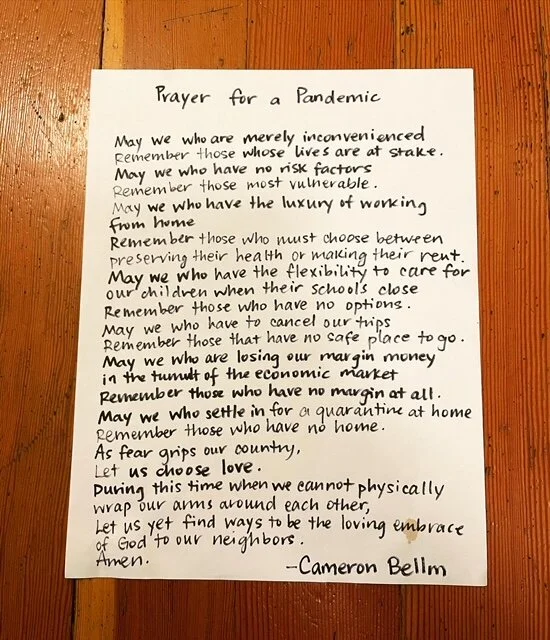 Prayer for a Pandemic
May we who are merely inconvenienced
Remember those whose lives are at stake.
May we who have no risk factors
Remember those most vulnerable.
May we who have the luxury of working
from home
Remember those who must choose between
preserving their health or making their rent.
May we who have the flexibility to care for
our children when their schools close
Remember those who have no options.
May we who have to cancel our trips
Remember those that have no safe place to go.
May we who are losing our margin money
in the tumult of the economic market
Remember those who have no margin at all.
May we who settle in for a quarantine at home
Remember those who have no home.
As fear grips our country,
Let us choose love.
During this time when we cannot physically
wrap our arms around each other,
Let us yet find ways to be the loving embrace
of God to our neighbors.
Amen.
-Cameron Bellm